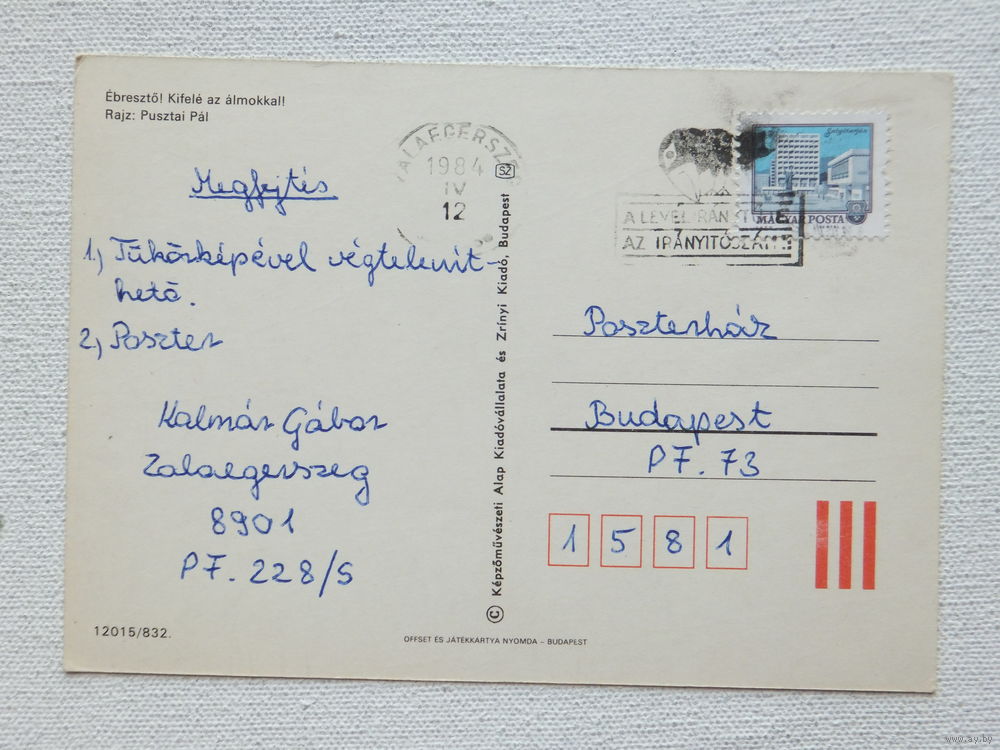 Ébresztő! Kifelé az álmokkal!
Rajz: Pusztai Pál
Megfejtés
1, Tükörképével végtelenít-
hető.
2, Poszter
Kalmár Gábor
Zalaegerszeg
8901
PF. 228/S
12015/832.
ZALAEGERSZ
1984
IV
12
SZ
© Képzőművészeti Alap Kiadóvállalata és Zrínyi Kiadó, Budapest
OFFSET ÉS JÁTÉKKARTYA NYOMDA – BUDAPEST
Salgótarján
MAGYAR POSTA
A LEVÉL IRÁN
AZ IRÁNYÍTÓSZÁM
Poszterház
Budapest
PF. 73
1 5 8 1
www.ay.by